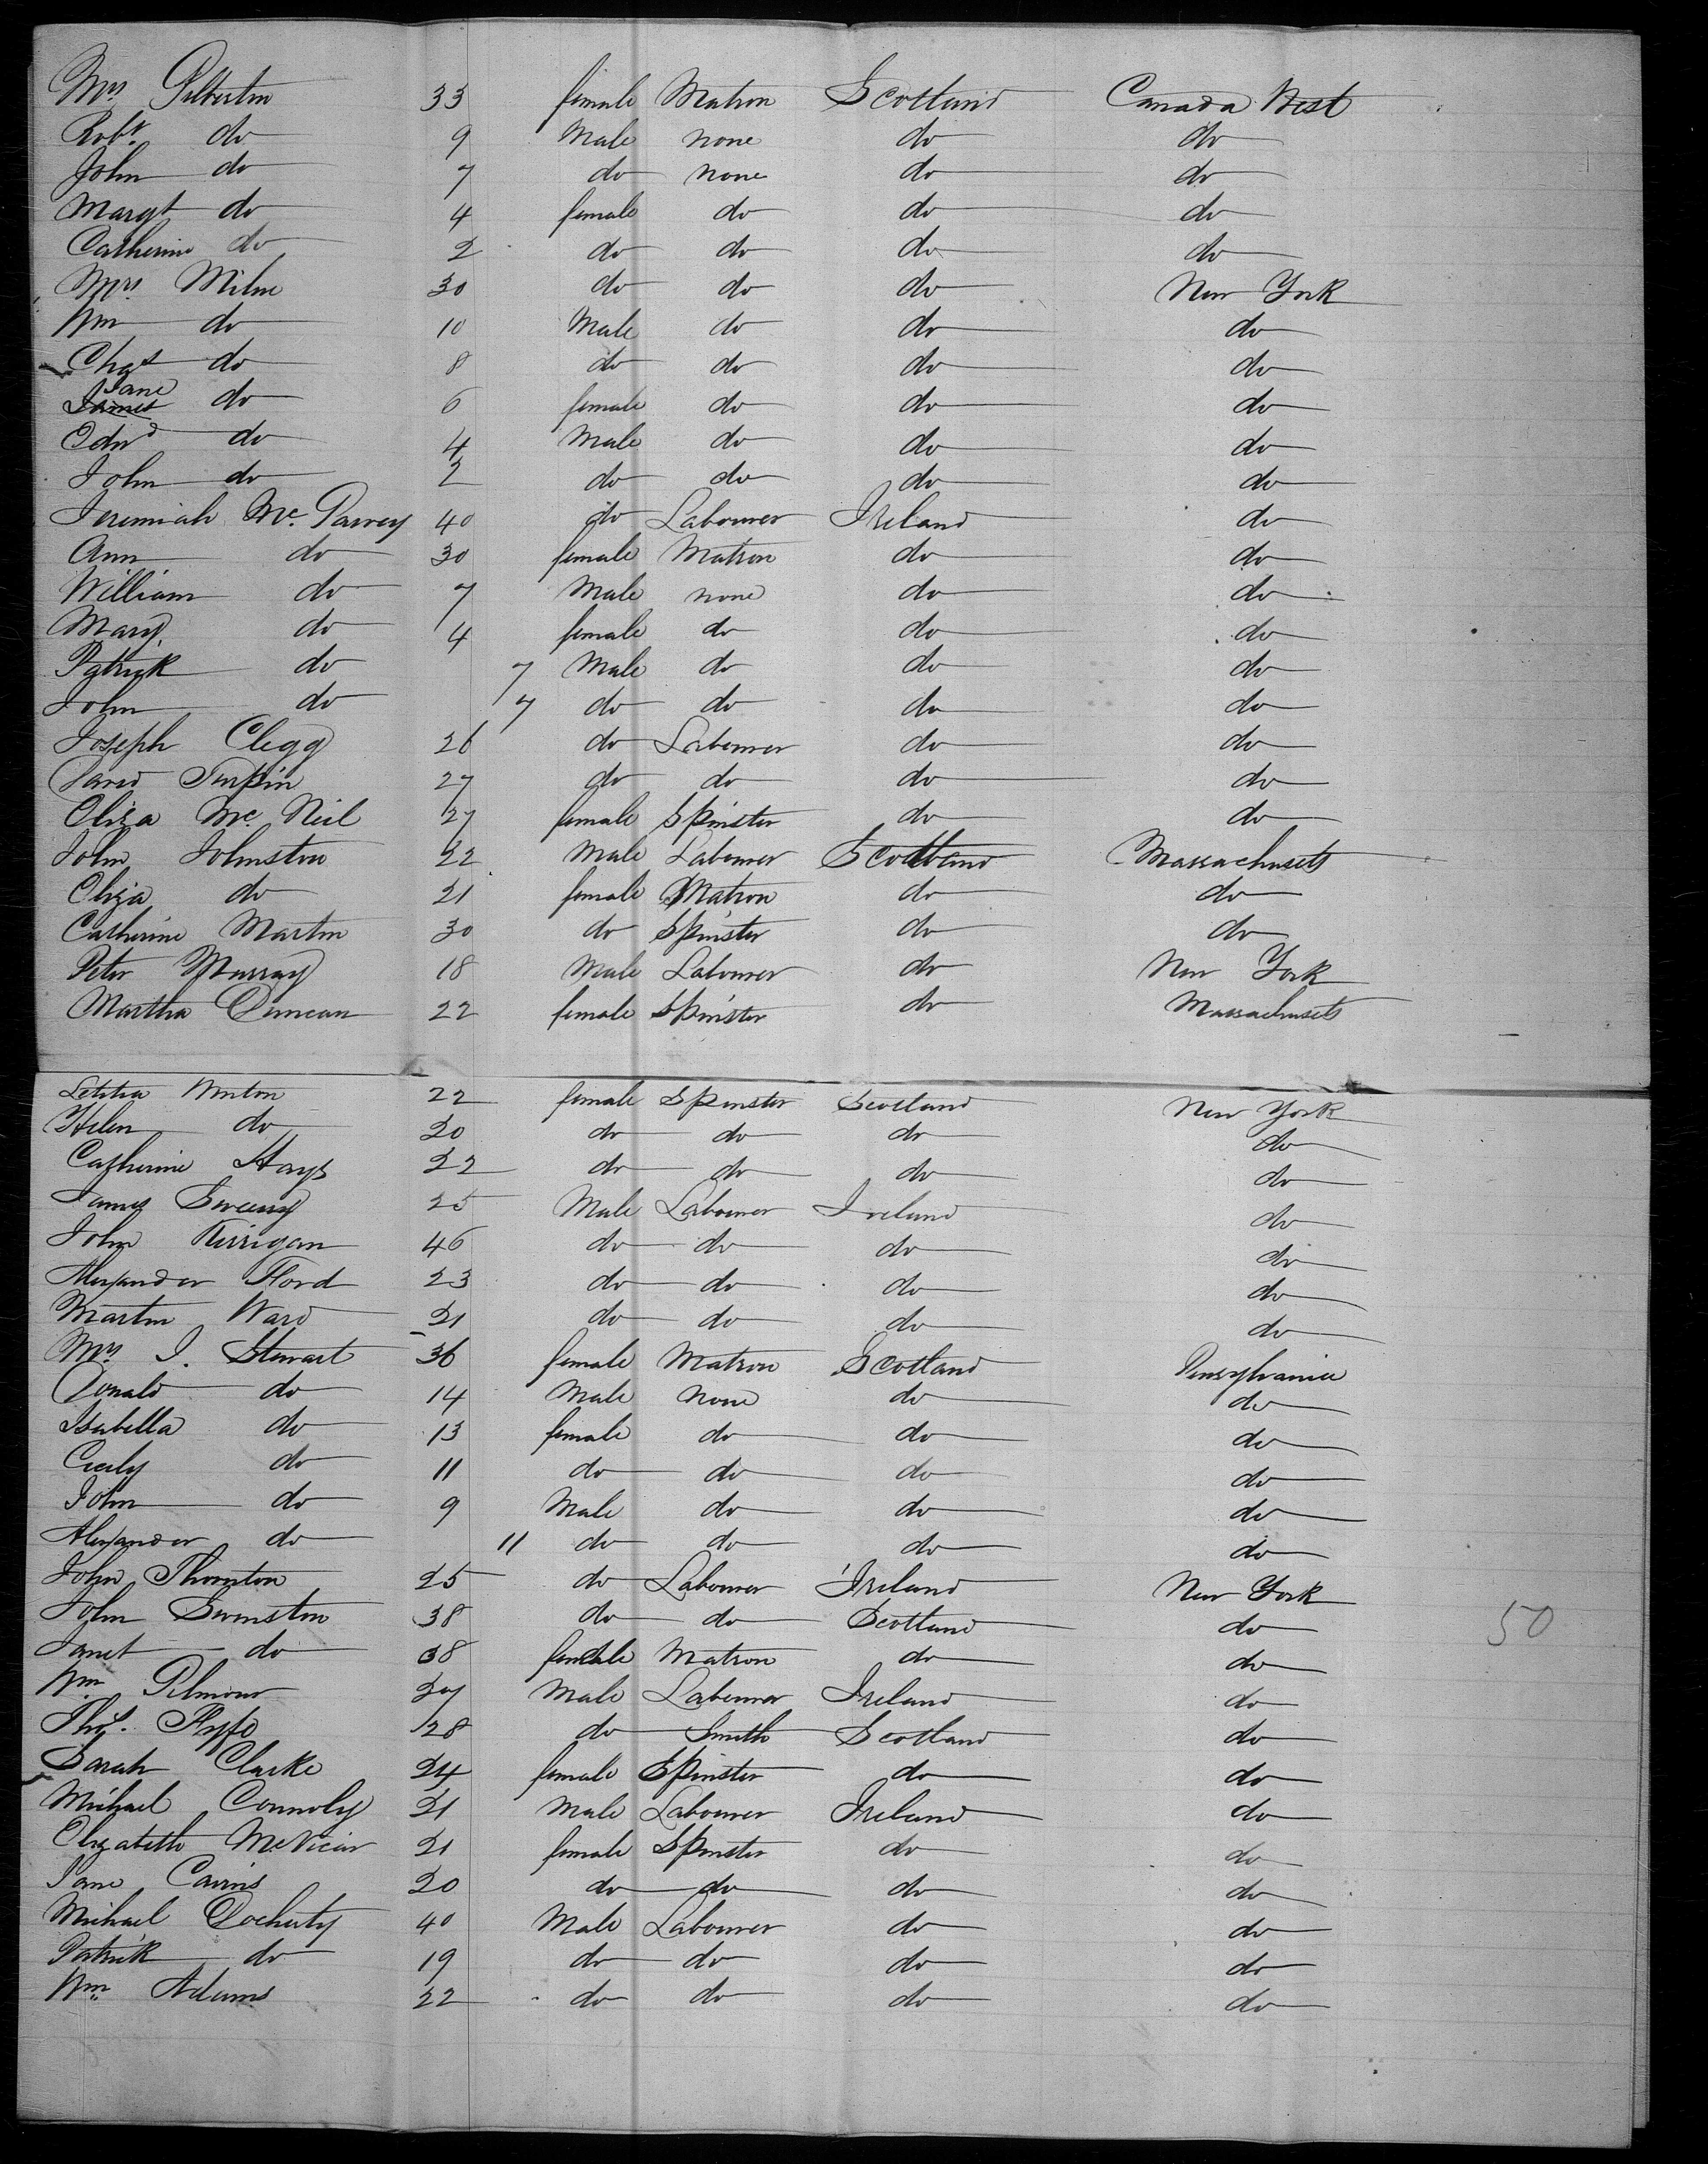 Mrs Gilberton 33 female Matron Scotland Canada West
Robt do 9 Male none do do
John do 7 do none do do
Margt do 4 female do do do
Catherine do 2 do do do do
Mrs Milne 30 do do do New York
Wm do 10 Male do do do
Chas do 8 do do do do
Jane James do 6 female do do do
Edwd do 4 Male do do do
John do 2 do do do do
Jeremiah Mc Garvey 40 do Labourer Ireland do
Ann do 30 female Matron do do
William do 7 Male none do do
Mary do 4 female do do do
Patrick do 7 Male do do do
John do 7 do do do do
Joseph Clegg 26 do Labourer do do
David Turpin 27 do do do do
Eliza Mc Neil 27 female Spinster do do
John Johnston 22 Male Labourer Scotland Massachusets
Eliza do 21 female Matron do do
Catherine Martin 30 do Spinster do do
Peter Murray 18 Male Labourer do New York
Martha Duncan 22 female Spinster do Massachusets
Letitia 22 female Spinster Scotland New York
Helen do 20 do do do do
Catherine Hays 22 do do do do
James Sweeny 25 Male Labourer Ireland do
John Kerrigan 46 do do do do
Alexander Flord 23 do do do do
Martin Ward 21 do do do do
Mrs J. Stewart 36 female Matron Scotland Pensylvania
Donald do 14 Male none do do
Isabella do 13 female do do do
Cicely do 11 do do do do
John do 9 Male do do do
Alexander do 11 do do do do
John Thornton 25 do Labourer Ireland New York
John Swinston 38 do do Scotland do
Janet do 38 female Matron do do
50
Wm Gilmour 27 Male Labourer Ireland do
Thos. Fyffe 28 do Smith Scotland do
Sarah Clarke 24 female Spinster do do
Michael Connoly 21 Male Labourer Ireland do
Elizabeth McVicar 21 female Spinster do do
Jane Cairns 20 do do do do
Michael Docherty 40 Male Labourer do do
Patrick do 19 do do do do
Wm Adams 22 do do do do